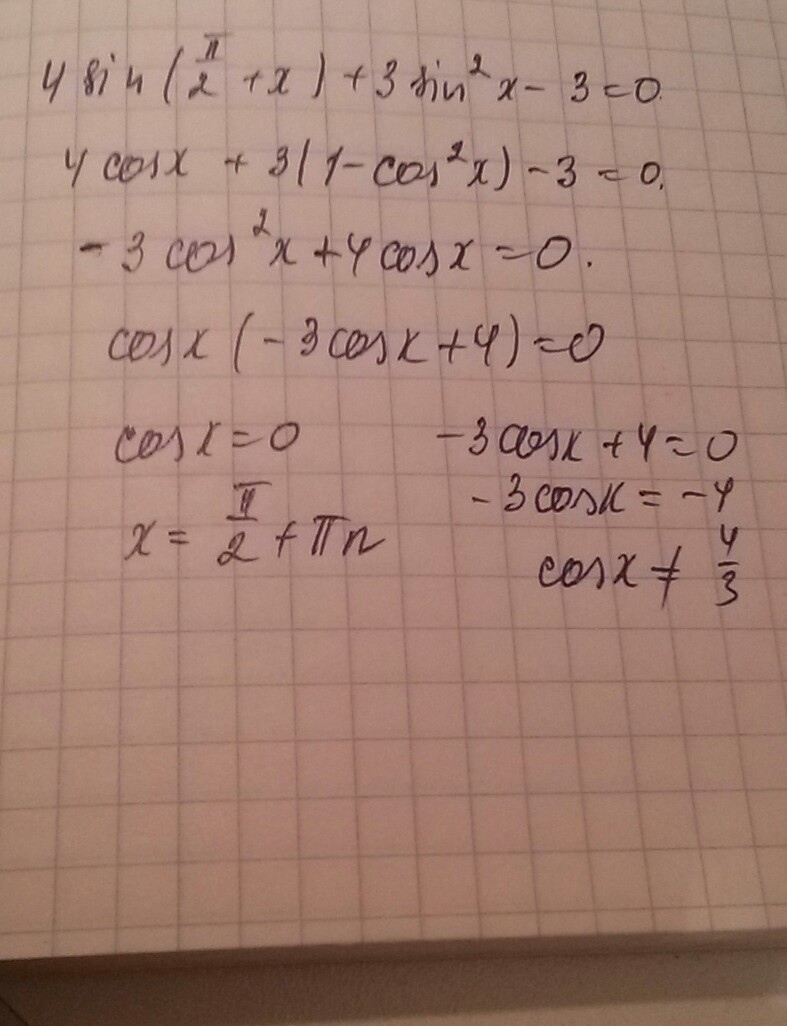 4 sin (π/2 + x) + 3 sin² x - 3 = 0.
4 cos x + 3(1 - cos² x) - 3 = 0.
- 3 cos² x + 4 cos x = 0.
cos x (- 3 cos x + 4) = 0
cos x = 0
x = π/2 + πn
-3 cos x + 4 = 0
- 3 cos x = -4
cos x ≠ 4/3